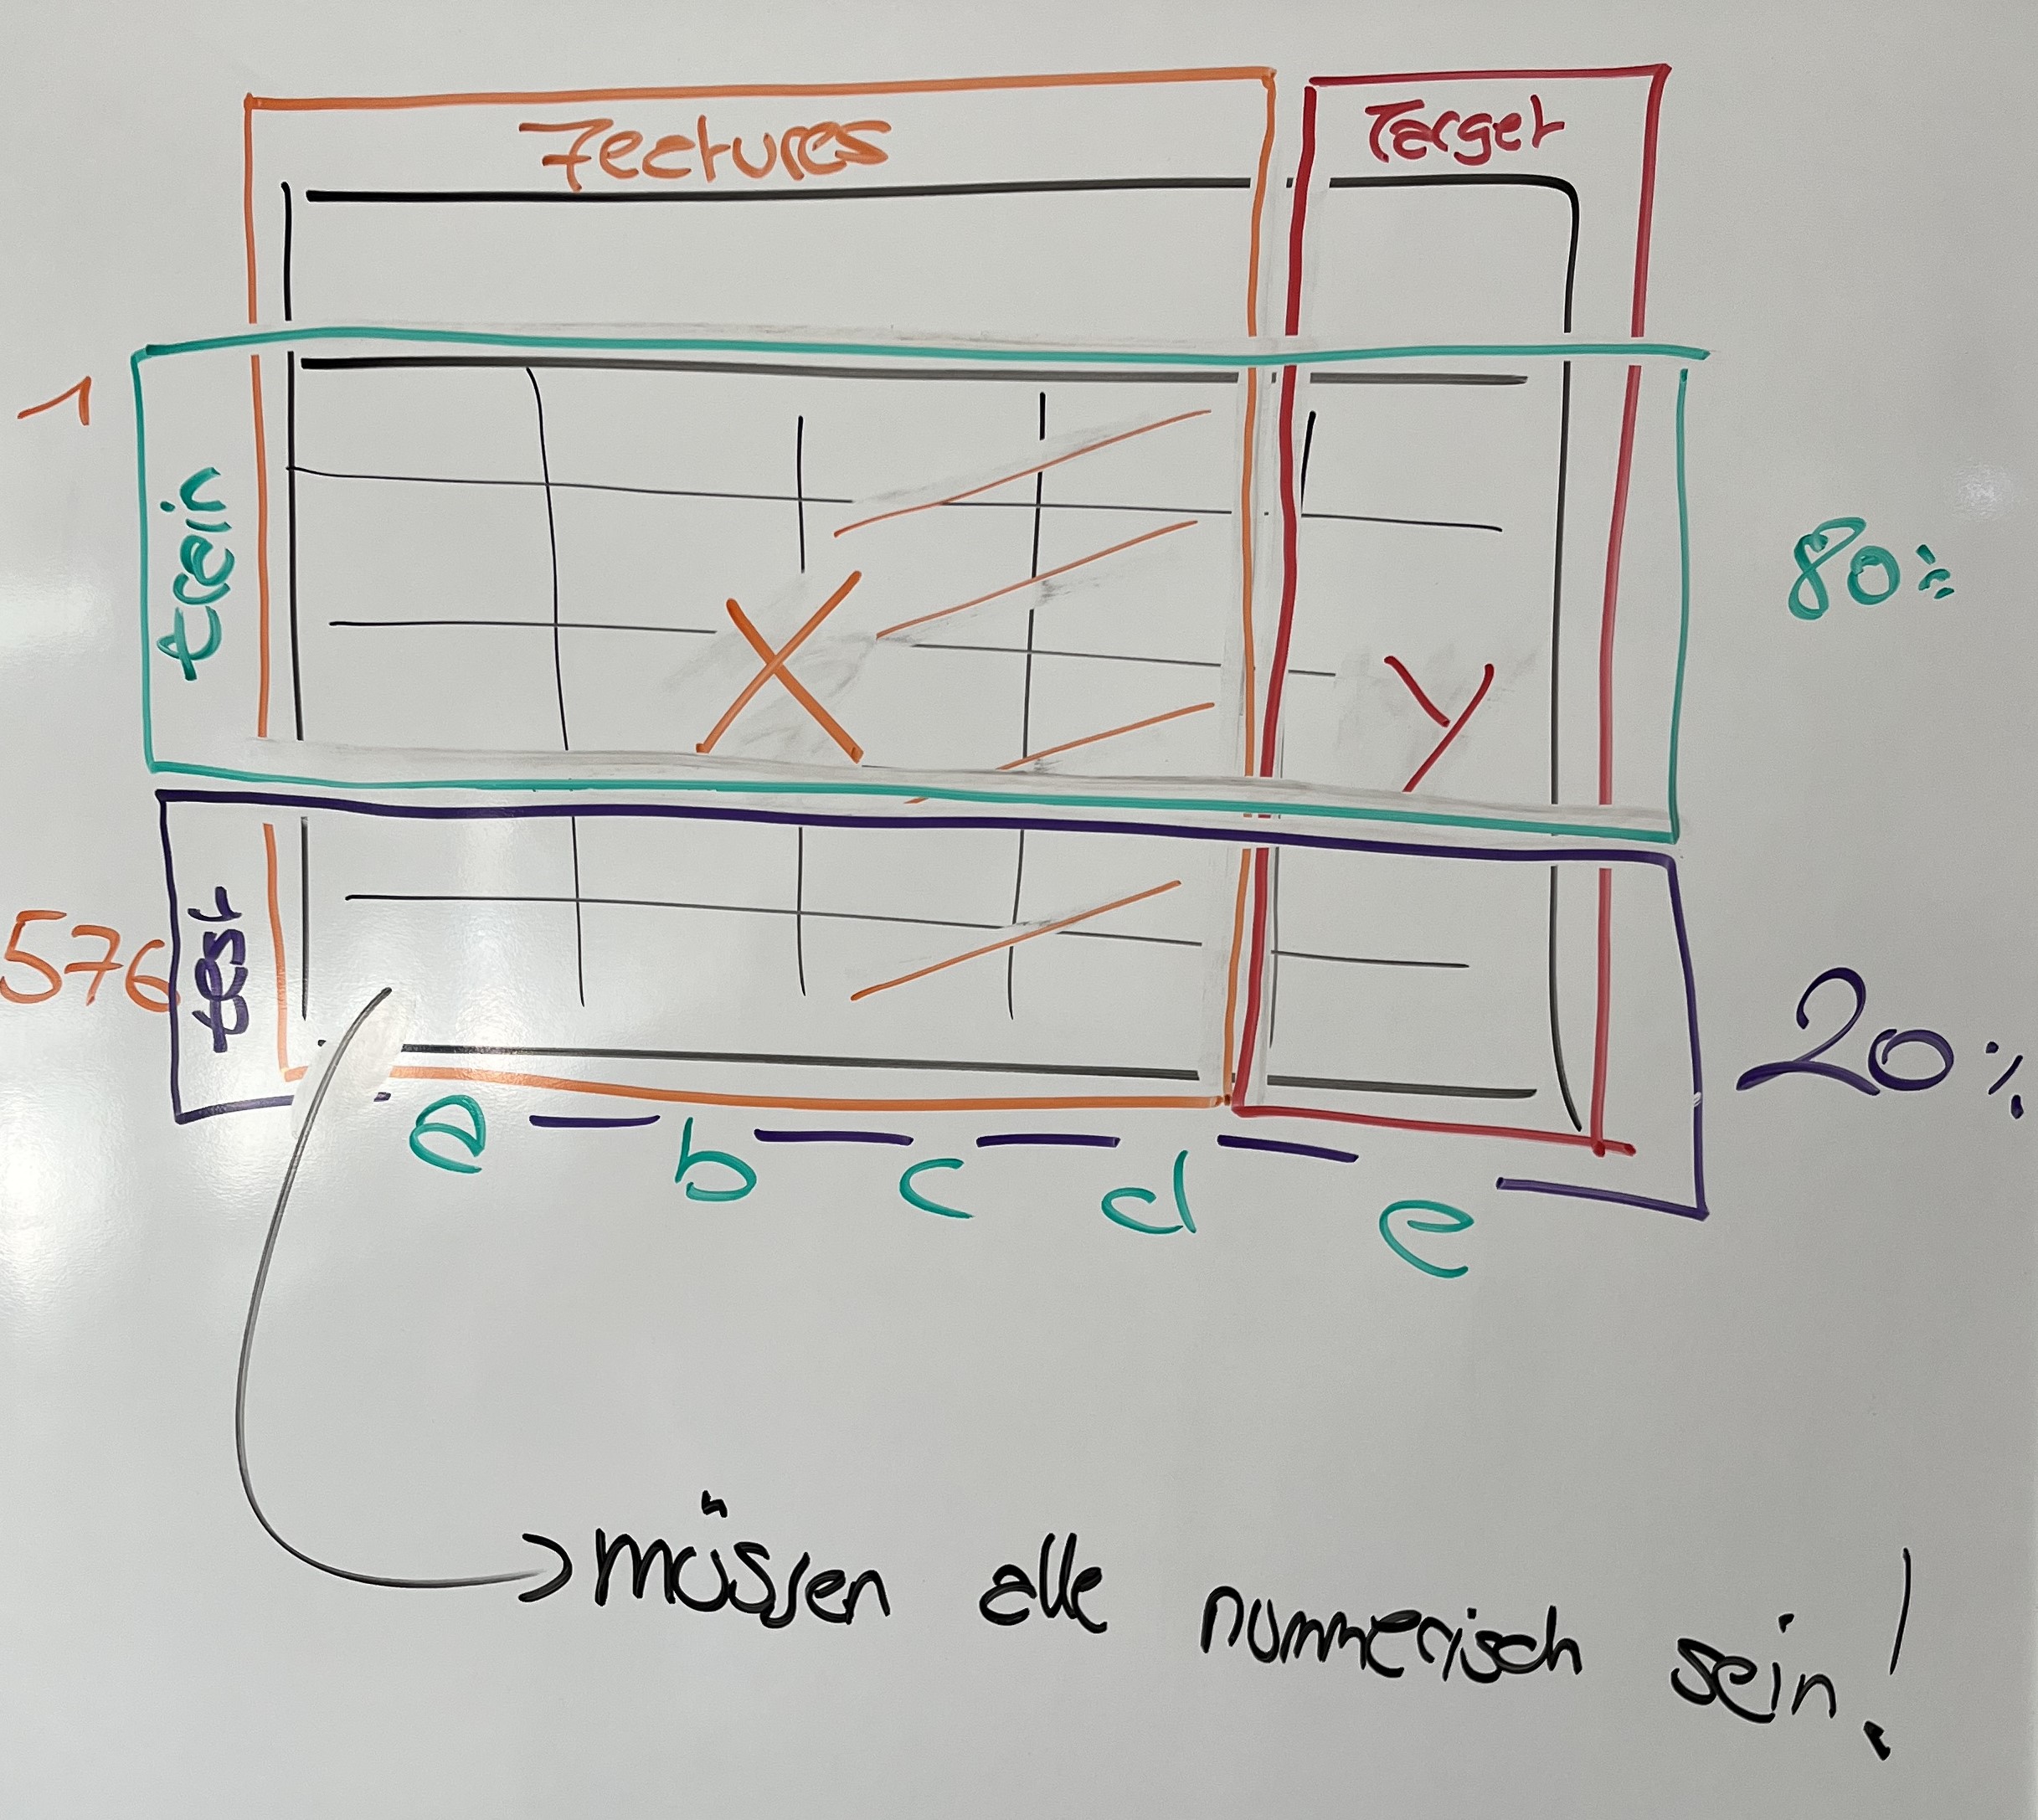 Features Target
1
train
80%
X
Y
576
test
20%
a b c d e
müssen alle nummerisch sein!